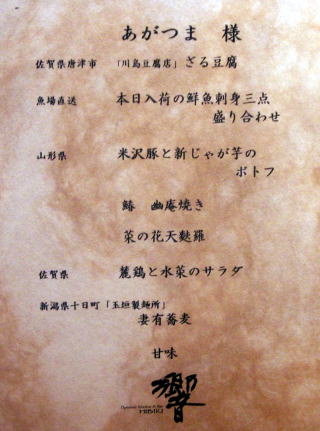 あがつま 様
佐賀県唐津市 「川島豆腐店」ざる豆腐
魚場直送 本日入荷の鮮魚刺身三点
盛り合わせ
山形県 米沢豚と新じゃが芋の
ポトフ
鰆 幽庵焼き
菜の花天麩羅
佐賀県 麓鶏と水菜のサラダ
新潟県十日町「玉垣製麺所」
妻有蕎麦
甘味
響
Dynamic Kitchen & Bar
HIBIKI